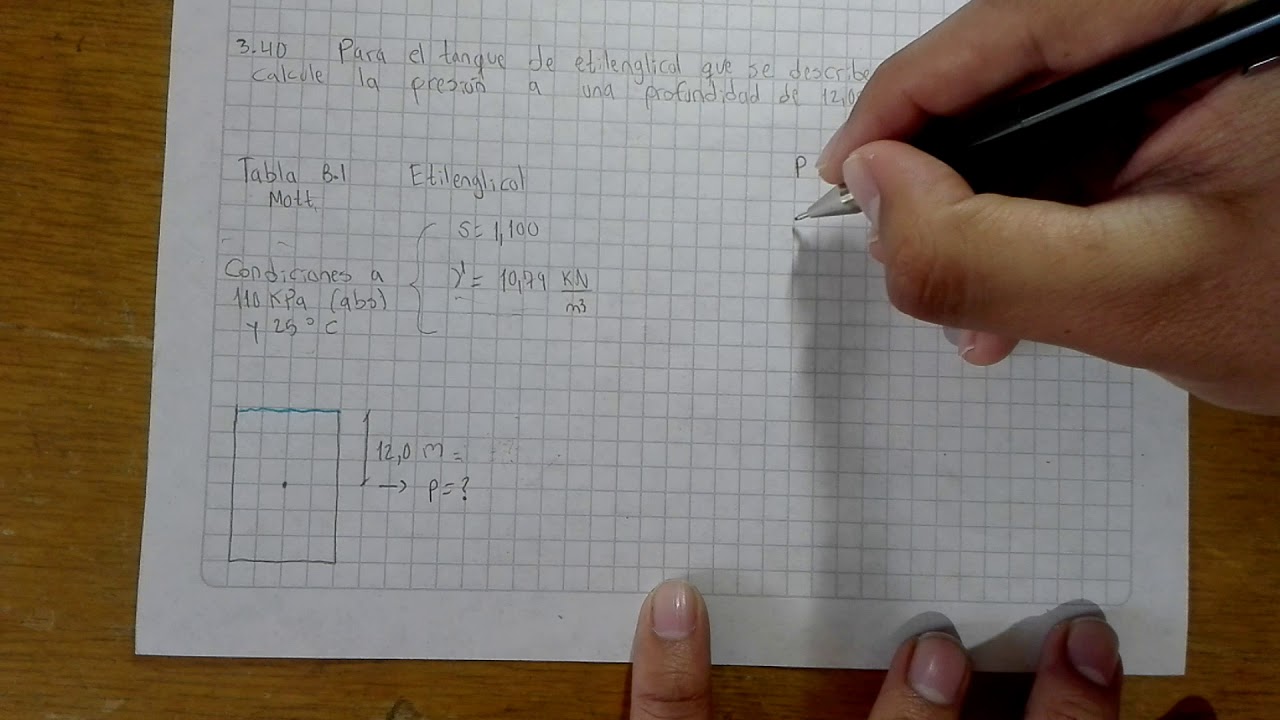 3.40 Para el tanque de etilenglical que se describe
calcule la presión a una profundidad de 12,0
Tabla B.1 Etilenglical
Mott.
S= 1,100
γ = 10,79 KN/m³
Condiciones a
110 KPa (abs)
y 25°C
P
12,0 m =
→ P=?